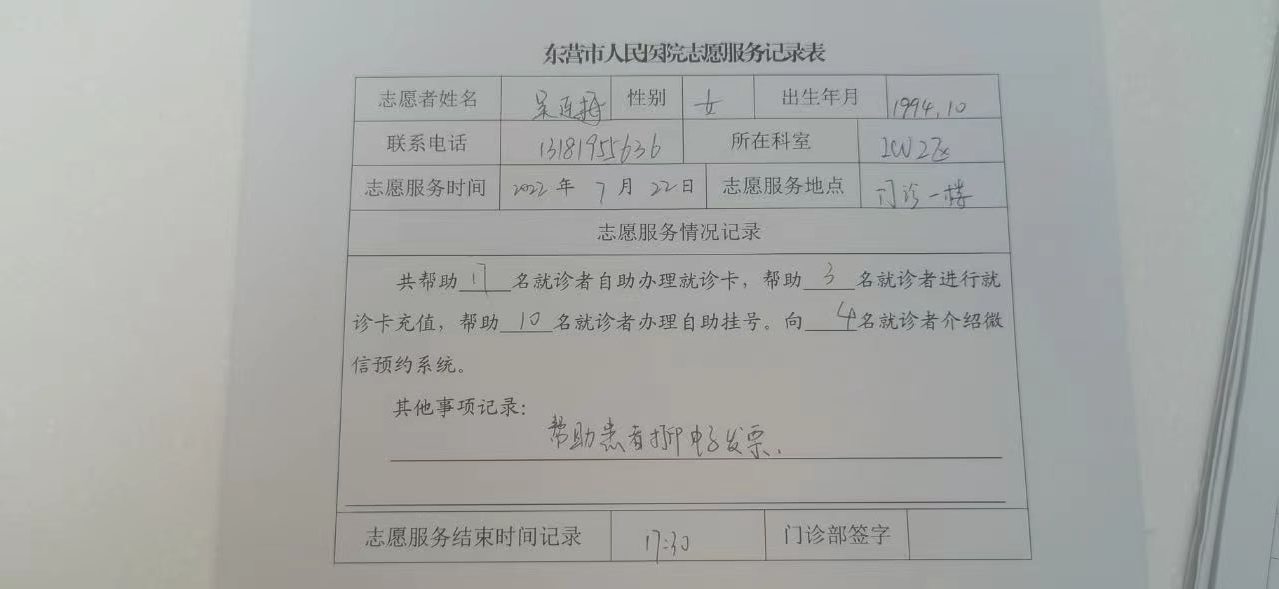 东营市人民医院志愿服务记录表
志愿者姓名 吴连梅 性别 女 出生年月 1994.10
联系电话 13181955636 所在科室 ICU2区
志愿服务时间 2022年 7月 22日 志愿服务地点 门诊一楼
志愿服务情况记录
共帮助17名就诊者自助办理就诊卡，帮助3名就诊者进行就
诊卡充值，帮助10名就诊者办理自助挂号。向4名就诊者介绍微
信预约系统。
其他事项记录：
帮助患者打印电子发票.
志愿服务结束时间记录 17:30 门诊部签字